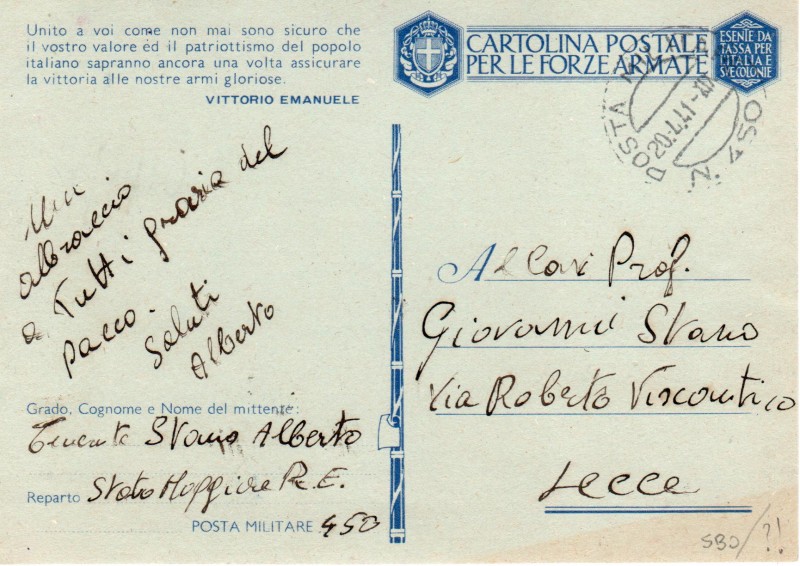 Unito a voi come non mai sono sicuro che
il vostro valore ed il patriottismo del popolo
italiano sapranno ancora una volta assicurare
la vittoria alle nostre armi gloriose.
VITTORIO EMANUELE
CARTOLINA POSTALE
PER LE FORZE ARMATE
ESENTE DA
TASSA PER
L'ITALIA E
SVE COLONIE
POSTA MILITARE
20.4.41-XIX
N. 450
Un
abbraccio
a Tutti grazie del
pacco.
Saluti
Alberto
Al Cav. Prof.
Giovanni Stano
Via Roberto Visconti 10
Lecce
Grado, Cognome e Nome del mittente:
Tenente Stano Alberto
Reparto Stato Maggiore R.E.
POSTA MILITARE 450
SBO/?!